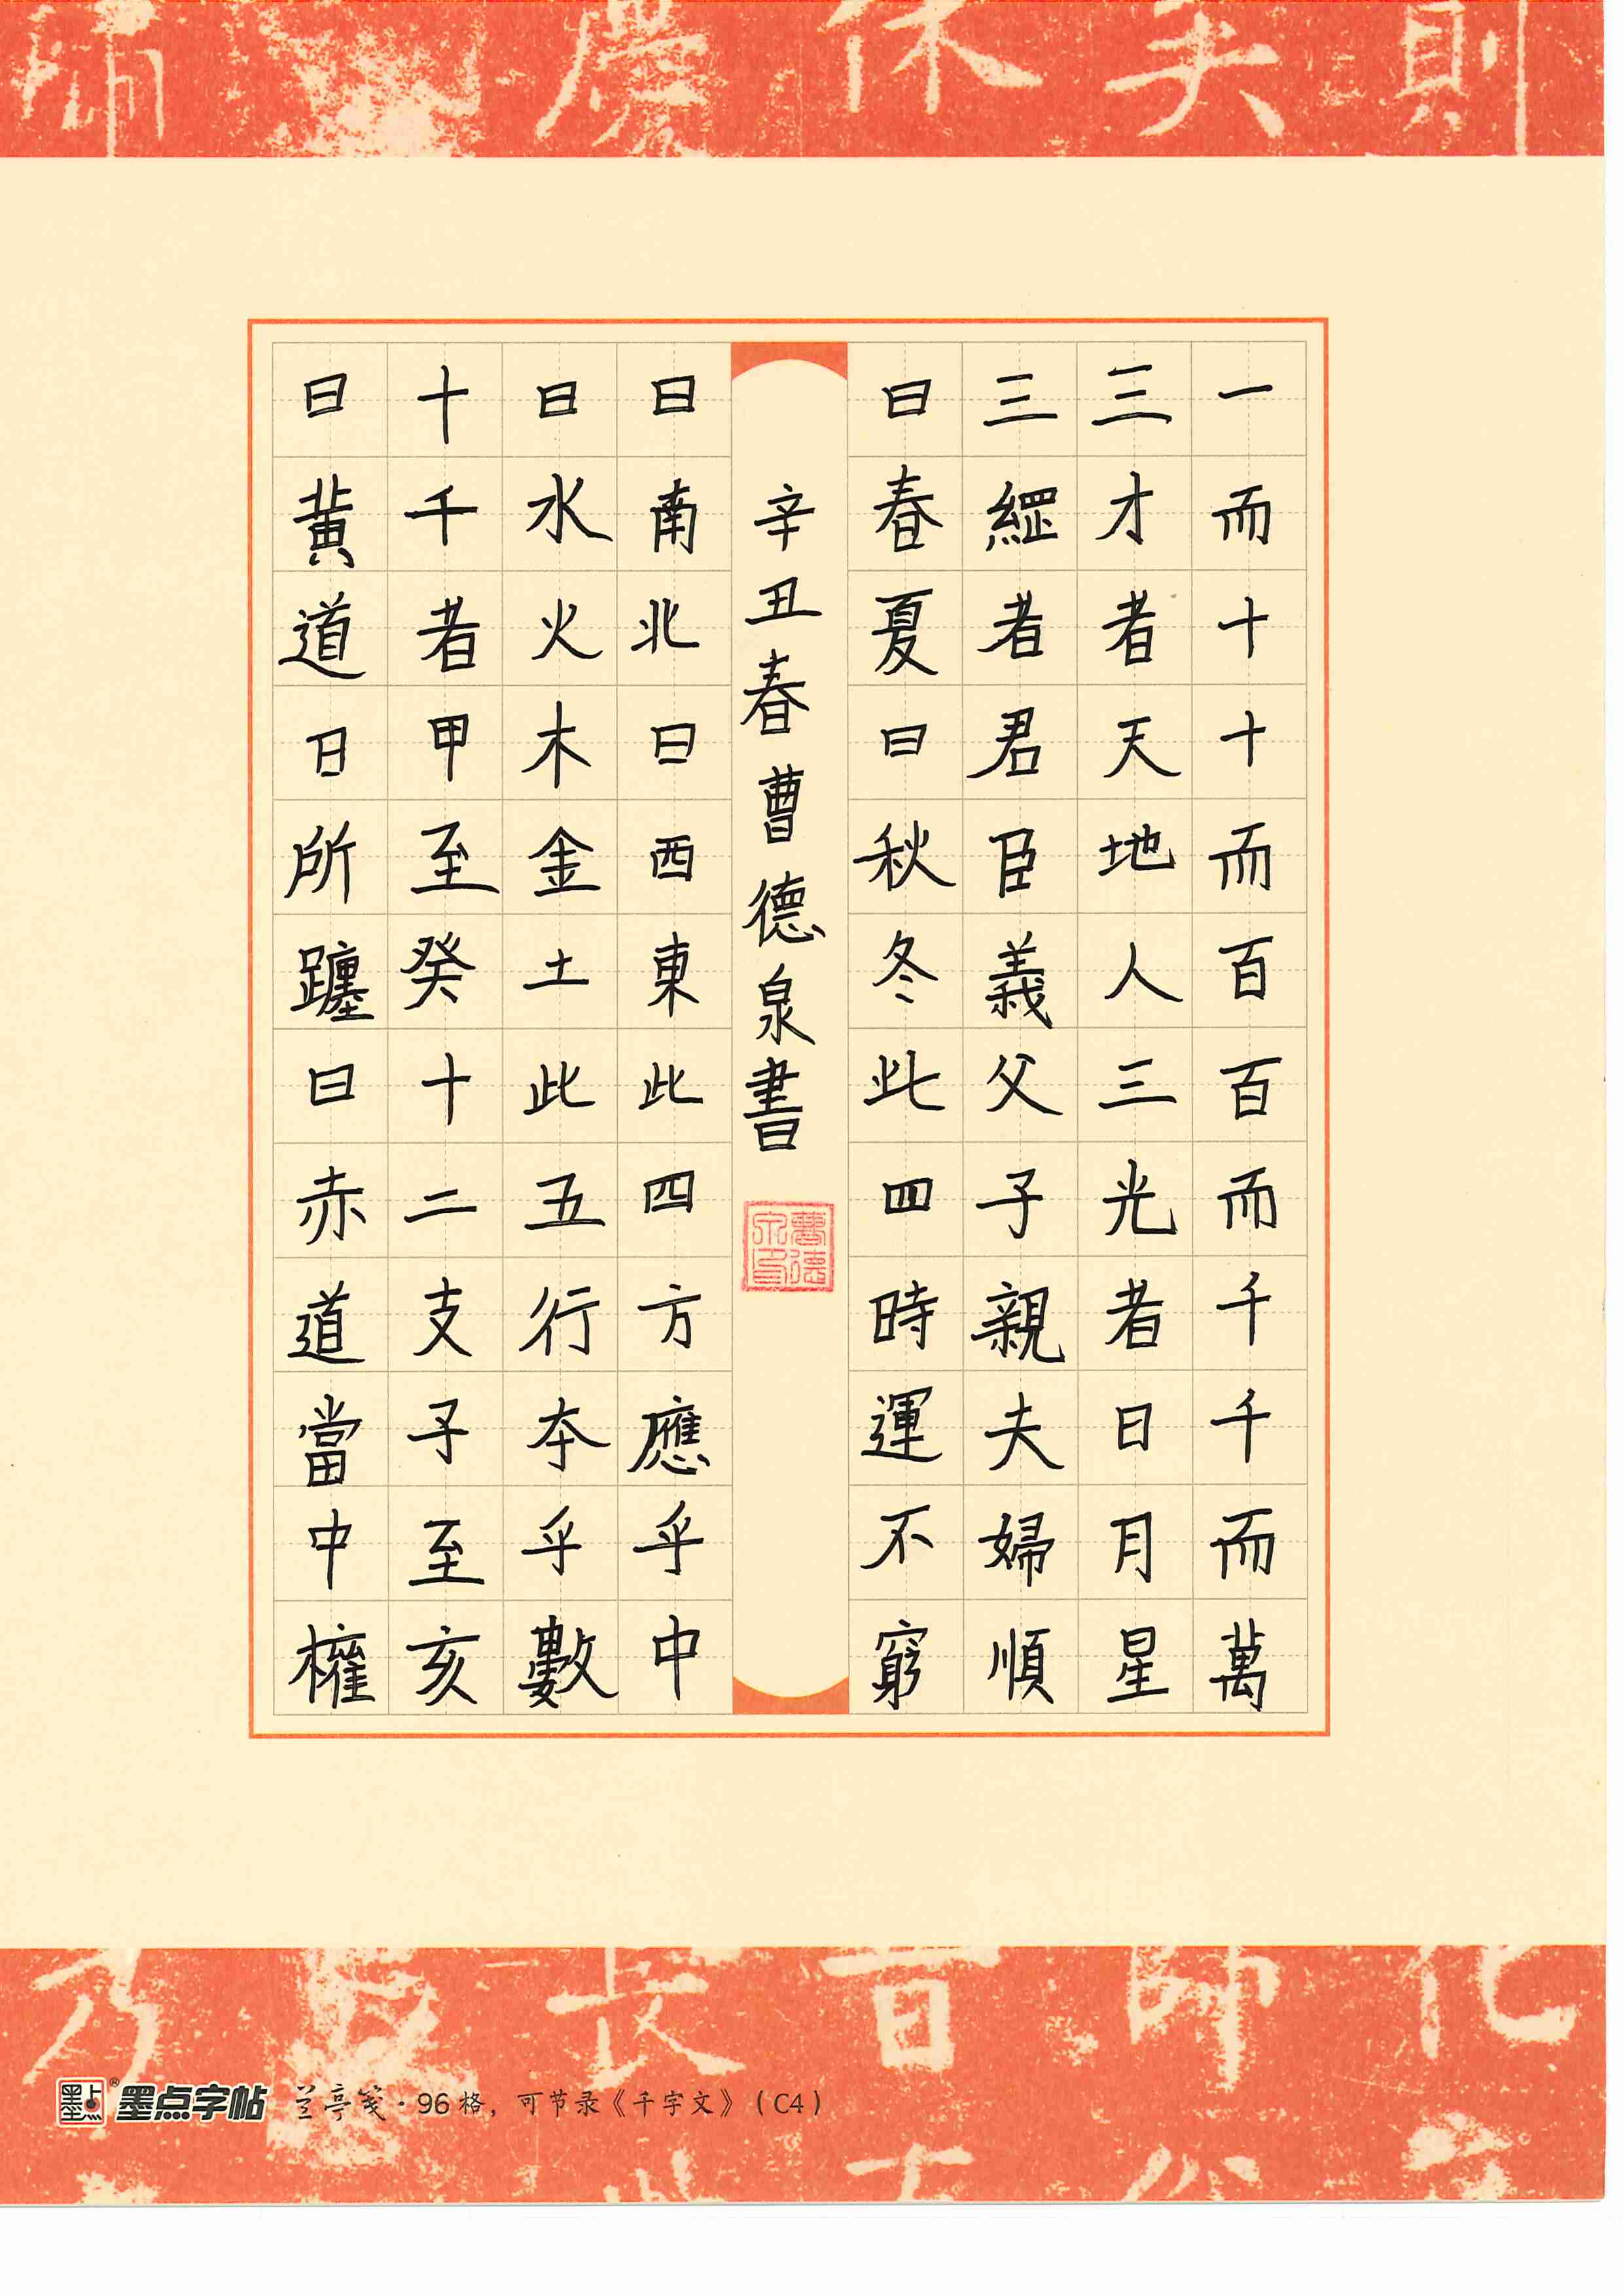 一而十十而百百而千千而萬
三才者天地人三光者日月星
三綱者君臣義父子親夫婦順
曰春夏曰秋冬此四時運不窮
辛丑春曹德泉書
曹德泉印
曰南北曰西東此四方應乎中
曰水火木金土此五行本乎數
十千者甲至癸十二支子至亥
曰黃道日所躔曰赤道當中權
墨点® 墨点字帖 兰亭笺·96格，可节录《千字文》（C4）